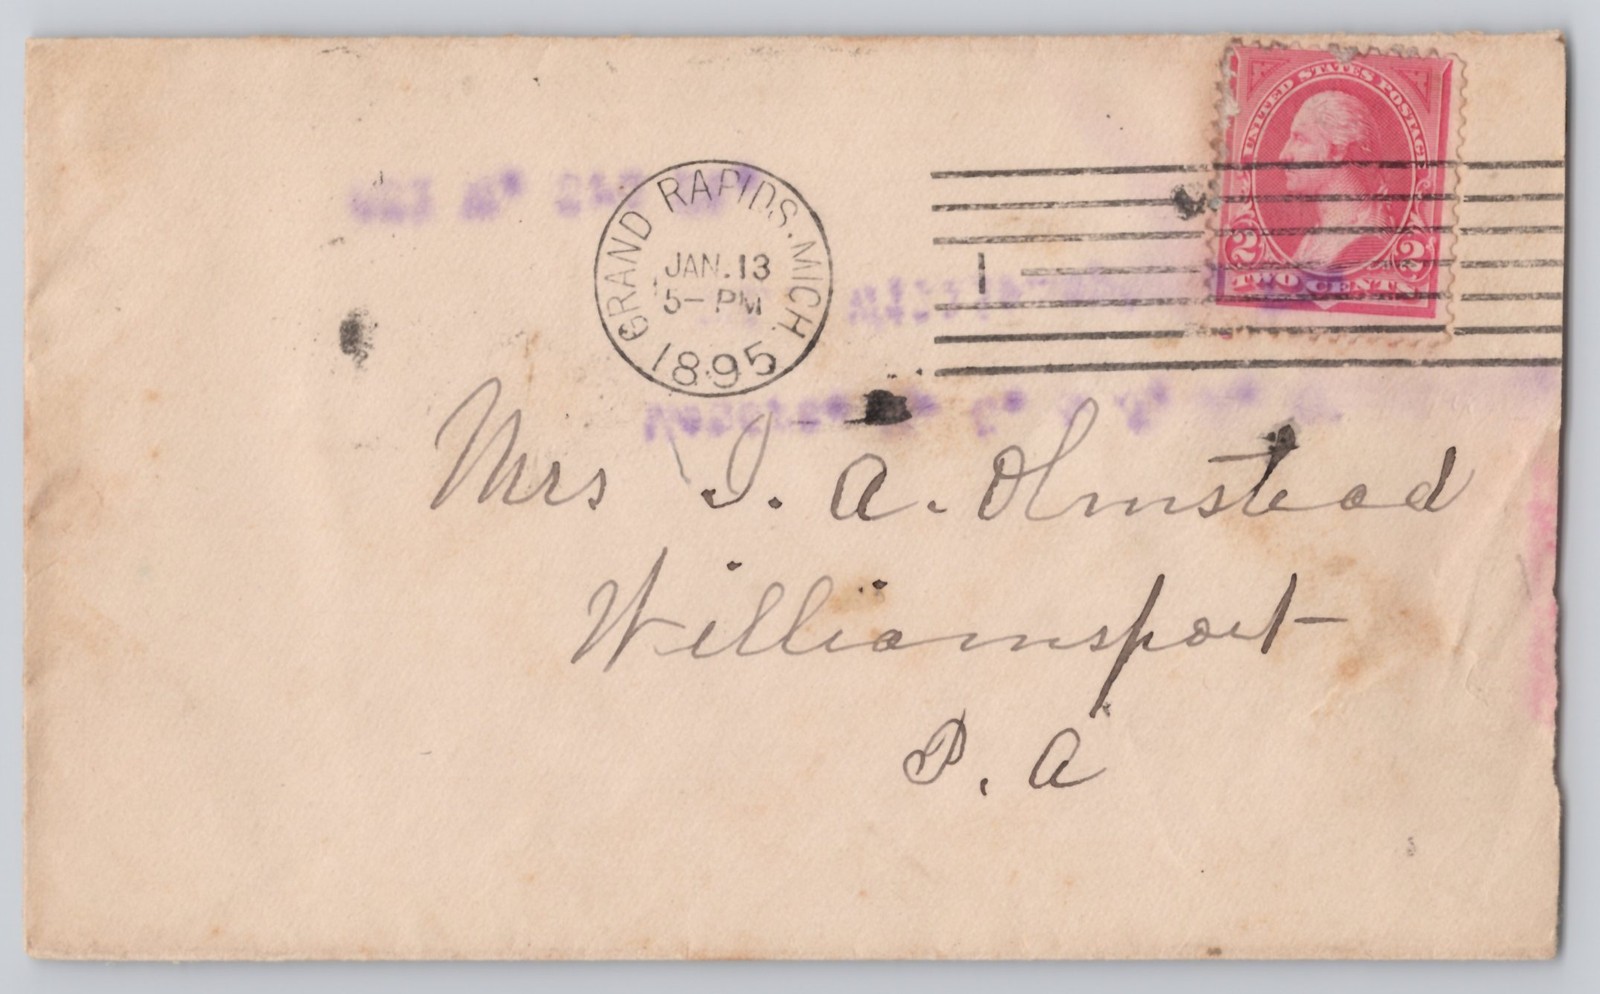 UNITED STATES POSTAGE
2 2
TWO CENTS
GRAND RAPIDS. MICH.
JAN. 13
5- PM
1895
1
Mrs I. A. Olmstead
Williamsport
P. A